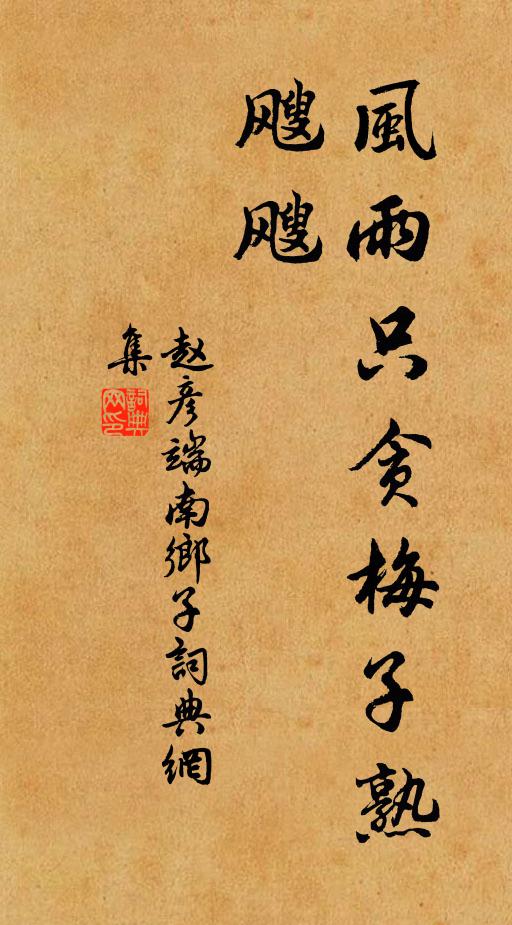 風雨只貪梅子熟
飕飕
赵彦端南鄉子詞典網
集
詞典
网印